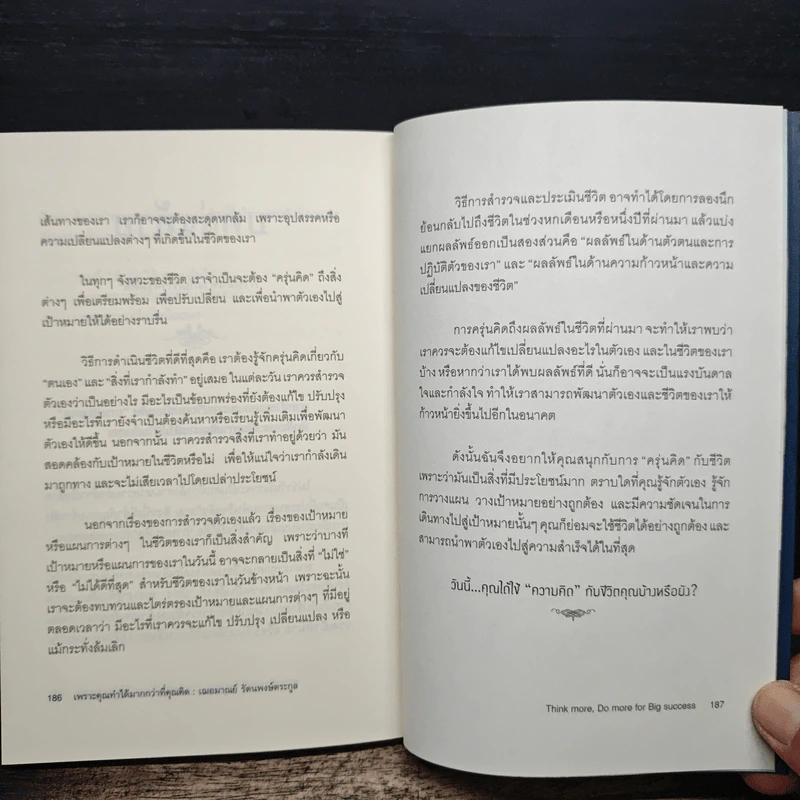 เส้นทางของเรา เราก็อาจจะต้องสะดุดหกล้ม เพราะอุปสรรคหรือ
ความเปลี่ยนแปลงต่างๆ ที่เกิดขึ้นในชีวิตของเรา
ในทุกๆ จังหวะของชีวิต เราจำเป็นจะต้อง “ครุ่นคิด” ถึงสิ่ง
ต่างๆ เพื่อเตรียมพร้อม เพื่อปรับเปลี่ยน และเพื่อนำพาตัวเองไปสู่
เป้าหมายให้ได้อย่างราบรื่น
วิธีการดำเนินชีวิตที่ดีที่สุดคือ เราต้องรู้จักครุ่นคิดเกี่ยวกับ
“ตนเอง” และ “สิ่งที่เรากำลังทำ” อยู่เสมอ ในแต่ละวัน เราควรสำรวจ
ตัวเองว่าเป็นอย่างไร มีอะไรเป็นข้อบกพร่องที่ยังต้องแก้ไข ปรับปรุง
หรือมีอะไรที่เรายังจำเป็นต้องค้นหาหรือเรียนรู้เพิ่มเติมเพื่อพัฒนา
ตัวเองให้ดีขึ้น นอกจากนั้น เราควรสำรวจสิ่งที่เราทำอยู่ด้วยว่า มัน
สอดคล้องกับเป้าหมายในชีวิตหรือไม่ เพื่อให้แน่ใจว่าเรากำลังเดิน
มาถูกทาง และจะไม่เสียเวลาไปโดยเปล่าประโยชน์
นอกจากเรื่องของการสำรวจตัวเองแล้ว เรื่องของเป้าหมาย
หรือแผนการต่างๆ ในชีวิตของเราก็เป็นสิ่งสำคัญ เพราะว่าบางที
เป้าหมายหรือแผนการของเราในวันนี้ อาจจะกลายเป็นสิ่งที่ “ไม่ใช่”
หรือ “ไม่ได้ดีที่สุด” สำหรับชีวิตของเราในวันข้างหน้า เพราะฉะนั้น
เราจะต้องทบทวนและไตร่ตรองเป้าหมายและแผนการต่างๆ ที่มีอยู่
ตลอดเวลาว่า มีอะไรที่เราควรจะแก้ไข ปรับปรุง เปลี่ยนแปลง หรือ
แม้กระทั่งล้มเลิก
186 เพราะคุณทำได้มากกว่าที่คุณคิด : เฌอมาณย์ รัตนพงษ์ตระกูล
วิธีการสำรวจและประเมินชีวิต อาจทำได้โดยการลองนึก
ย้อนกลับไปถึงชีวิตในช่วงหกเดือนหรือหนึ่งปีที่ผ่านมา แล้วแบ่ง
แยกผลลัพธ์ออกเป็นสองส่วนคือ “ผลลัพธ์ในด้านตัวตนและการ
ปฏิบัติตัวของเรา” และ “ผลลัพธ์ในด้านความก้าวหน้าและความ
เปลี่ยนแปลงของชีวิต”
การครุ่นคิดถึงผลลัพธ์ในชีวิตที่ผ่านมา จะทำให้เราพบว่า
เราควรจะต้องแก้ไขเปลี่ยนแปลงอะไรในตัวเอง และในชีวิตของเรา
บ้าง หรือหากว่าเราได้พบผลลัพธ์ที่ดี นั่นก็อาจจะเป็นแรงบันดาล
ใจและกำลังใจ ทำให้เราสามารถพัฒนาตัวเองและชีวิตของเราให้
ก้าวหน้ายิ่งขึ้นไปอีกในอนาคต
ดังนั้นฉันจึงอยากให้คุณสนุกกับการ “ครุ่นคิด” กับชีวิต
เพราะว่ามันเป็นสิ่งที่มีประโยชน์มาก ตราบใดที่คุณรู้จักตัวเอง รู้จัก
การวางแผน วางเป้าหมายอย่างถูกต้อง และมีความชัดเจนในการ
เดินทางไปสู่เป้าหมายนั้นๆ คุณก็ย่อมจะใช้ชีวิตได้อย่างถูกต้อง และ
สามารถนำพาตัวเองไปสู่ความสำเร็จได้ในที่สุด
วันนี้...คุณได้ใช้ “ความคิด” กับชีวิตคุณบ้างหรือยัง?
Think more, Do more for Big success 187